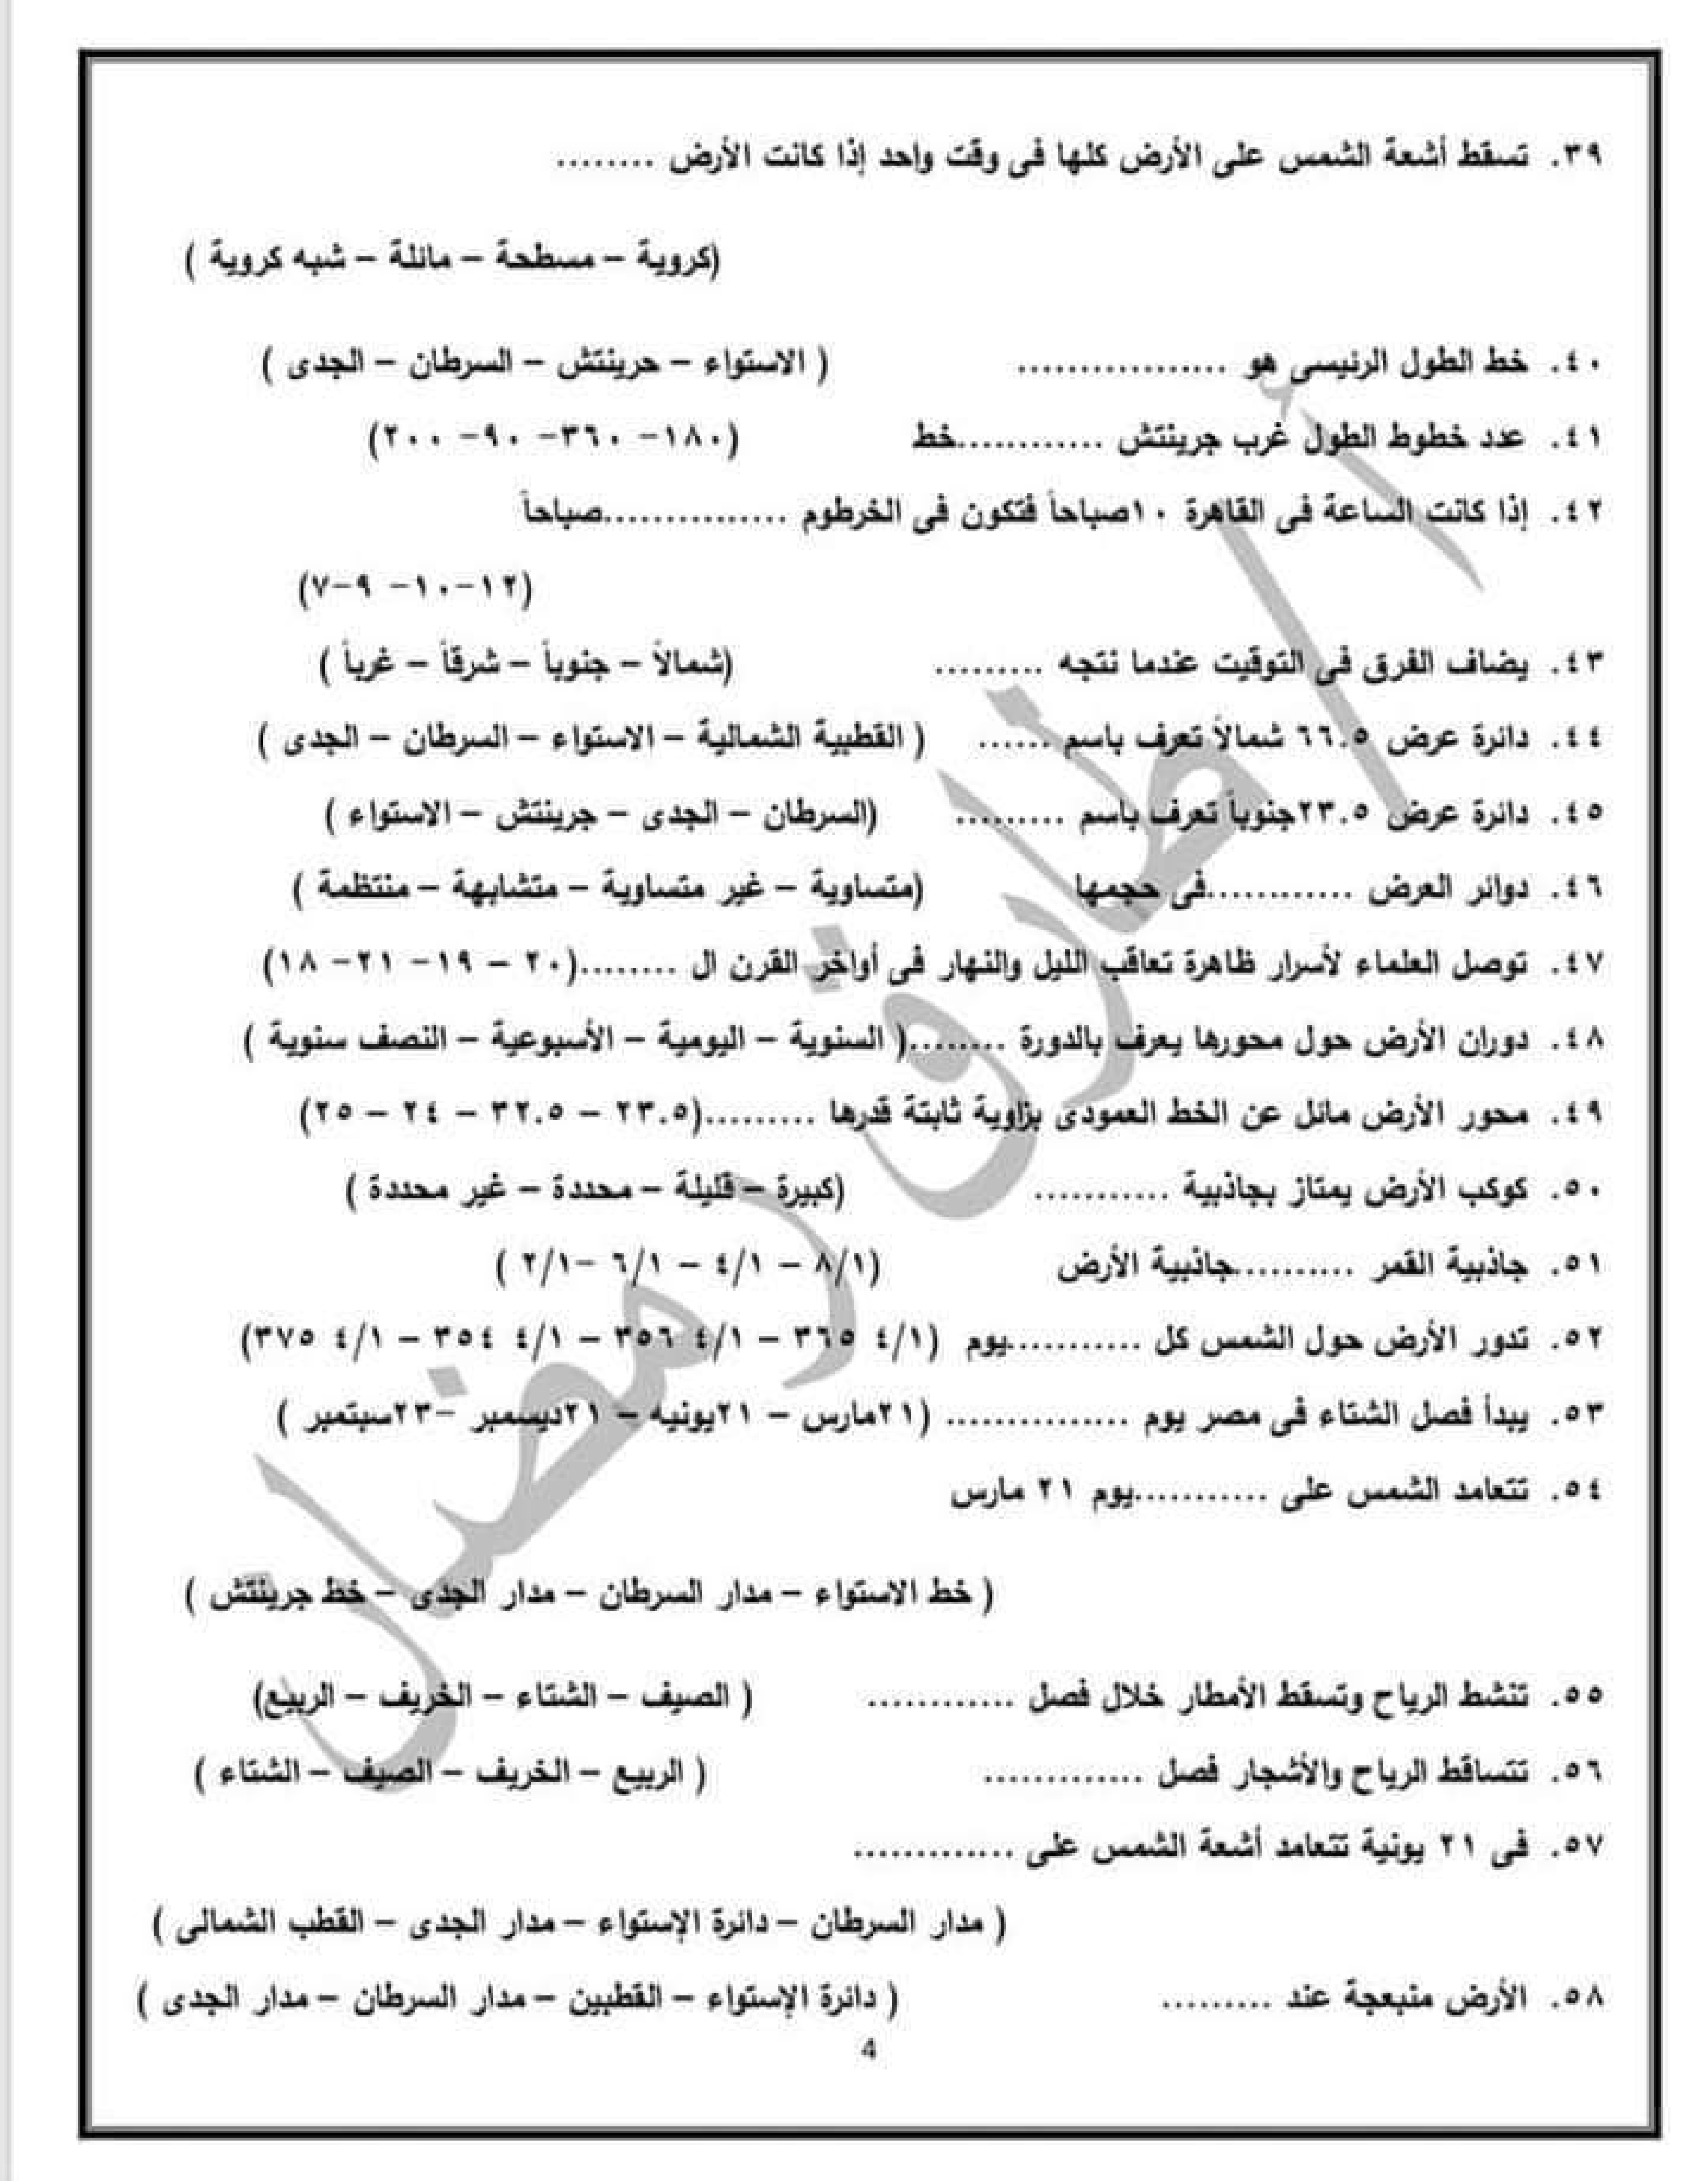 ٣٩. تسقط أشعة الشمس على الأرض كلها فى وقت واحد إذا كانت الأرض ........
(كروية – مسطحة – مائلة – شبه كروية )
٤٠. خط الطول الرئيسى هو ................. ( الاستواء – حرينتش – السرطان – الجدى )
٤١. عدد خطوط الطول غرب جرينتش ............خط (١٨٠– ٣٦٠– ٩٠– ٢٠٠)
٤٢. إذا كانت الساعة فى القاهرة ١٠صباحاً فتكون فى الخرطوم ...............صباحاً
(١٢–١٠– ٩–٧)
٤٣. يضاف الفرق فى التوقيت عندما نتجه ......... (شمالاً – جنوباً – شرقاً – غرباً )
٤٤. دائرة عرض ٦٦.٥ شمالاً تعرف باسم ...... ( القطبية الشمالية – الاستواء – السرطان – الجدى )
٤٥. دائرة عرض ٢٣.٥جنوباً تعرف باسم ......... (السرطان – الجدى – جرينتش – الاستواء )
٤٦. دوائر العرض ............فى حجمها (متساوية – غير متساوية – متشابهة – منتظمة )
٤٧. توصل العلماء لأسرار ظاهرة تعاقب الليل والنهار فى أواخر القرن ال ........(٢٠ – ١٩– ٢١– ١٨)
٤٨. دوران الأرض حول محورها يعرف بالدورة ........( السنوية – اليومية – الأسبوعية – النصف سنوية )
٤٩. محور الأرض مائل عن الخط العمودى بزاوية ثابتة قدرها .........(٢٣.٥ – ٣٢.٥ – ٢٤ – ٢٥)
٥٠. كوكب الأرض يمتاز بجاذبية ........... (كبيرة – قليلة – محددة – غير محددة )
٥١. جاذبية القمر ..........جاذبية الأرض (٨/١ – ٤/١ – ٦/١ –٢/١ )
٥٢. تدور الأرض حول الشمس كل ...........يوم (٤/١ ٣٦٥ – ٤/١ ٣٥٦ – ٤/١ ٣٥٤ – ٤/١ ٣٧٥)
٥٣. يبدأ فصل الشتاء فى مصر يوم ............... (٢١مارس – ٢١يونيه – ٢١ديسمبر –٢٣سبتمبر )
٥٤. تتعامد الشمس على ...........يوم ٢١ مارس
( خط الاستواء – مدار السرطان – مدار الجدى – خط جرينتش )
٥٥. تنشط الرياح وتسقط الأمطار خلال فصل ............ ( الصيف – الشتاء – الخريف – الربيع)
٥٦. تتساقط الرياح والأشجار فصل ............. ( الربيع – الخريف – الصيف – الشتاء )
٥٧. فى ٢١ يونية تتعامد أشعة الشمس على .............
( مدار السرطان – دائرة الإستواء – مدار الجدى – القطب الشمالى )
٥٨. الأرض منبعجة عند ......... ( دائرة الإستواء – القطبين – مدار السرطان – مدار الجدى )
4
أ/ طارق رمضان